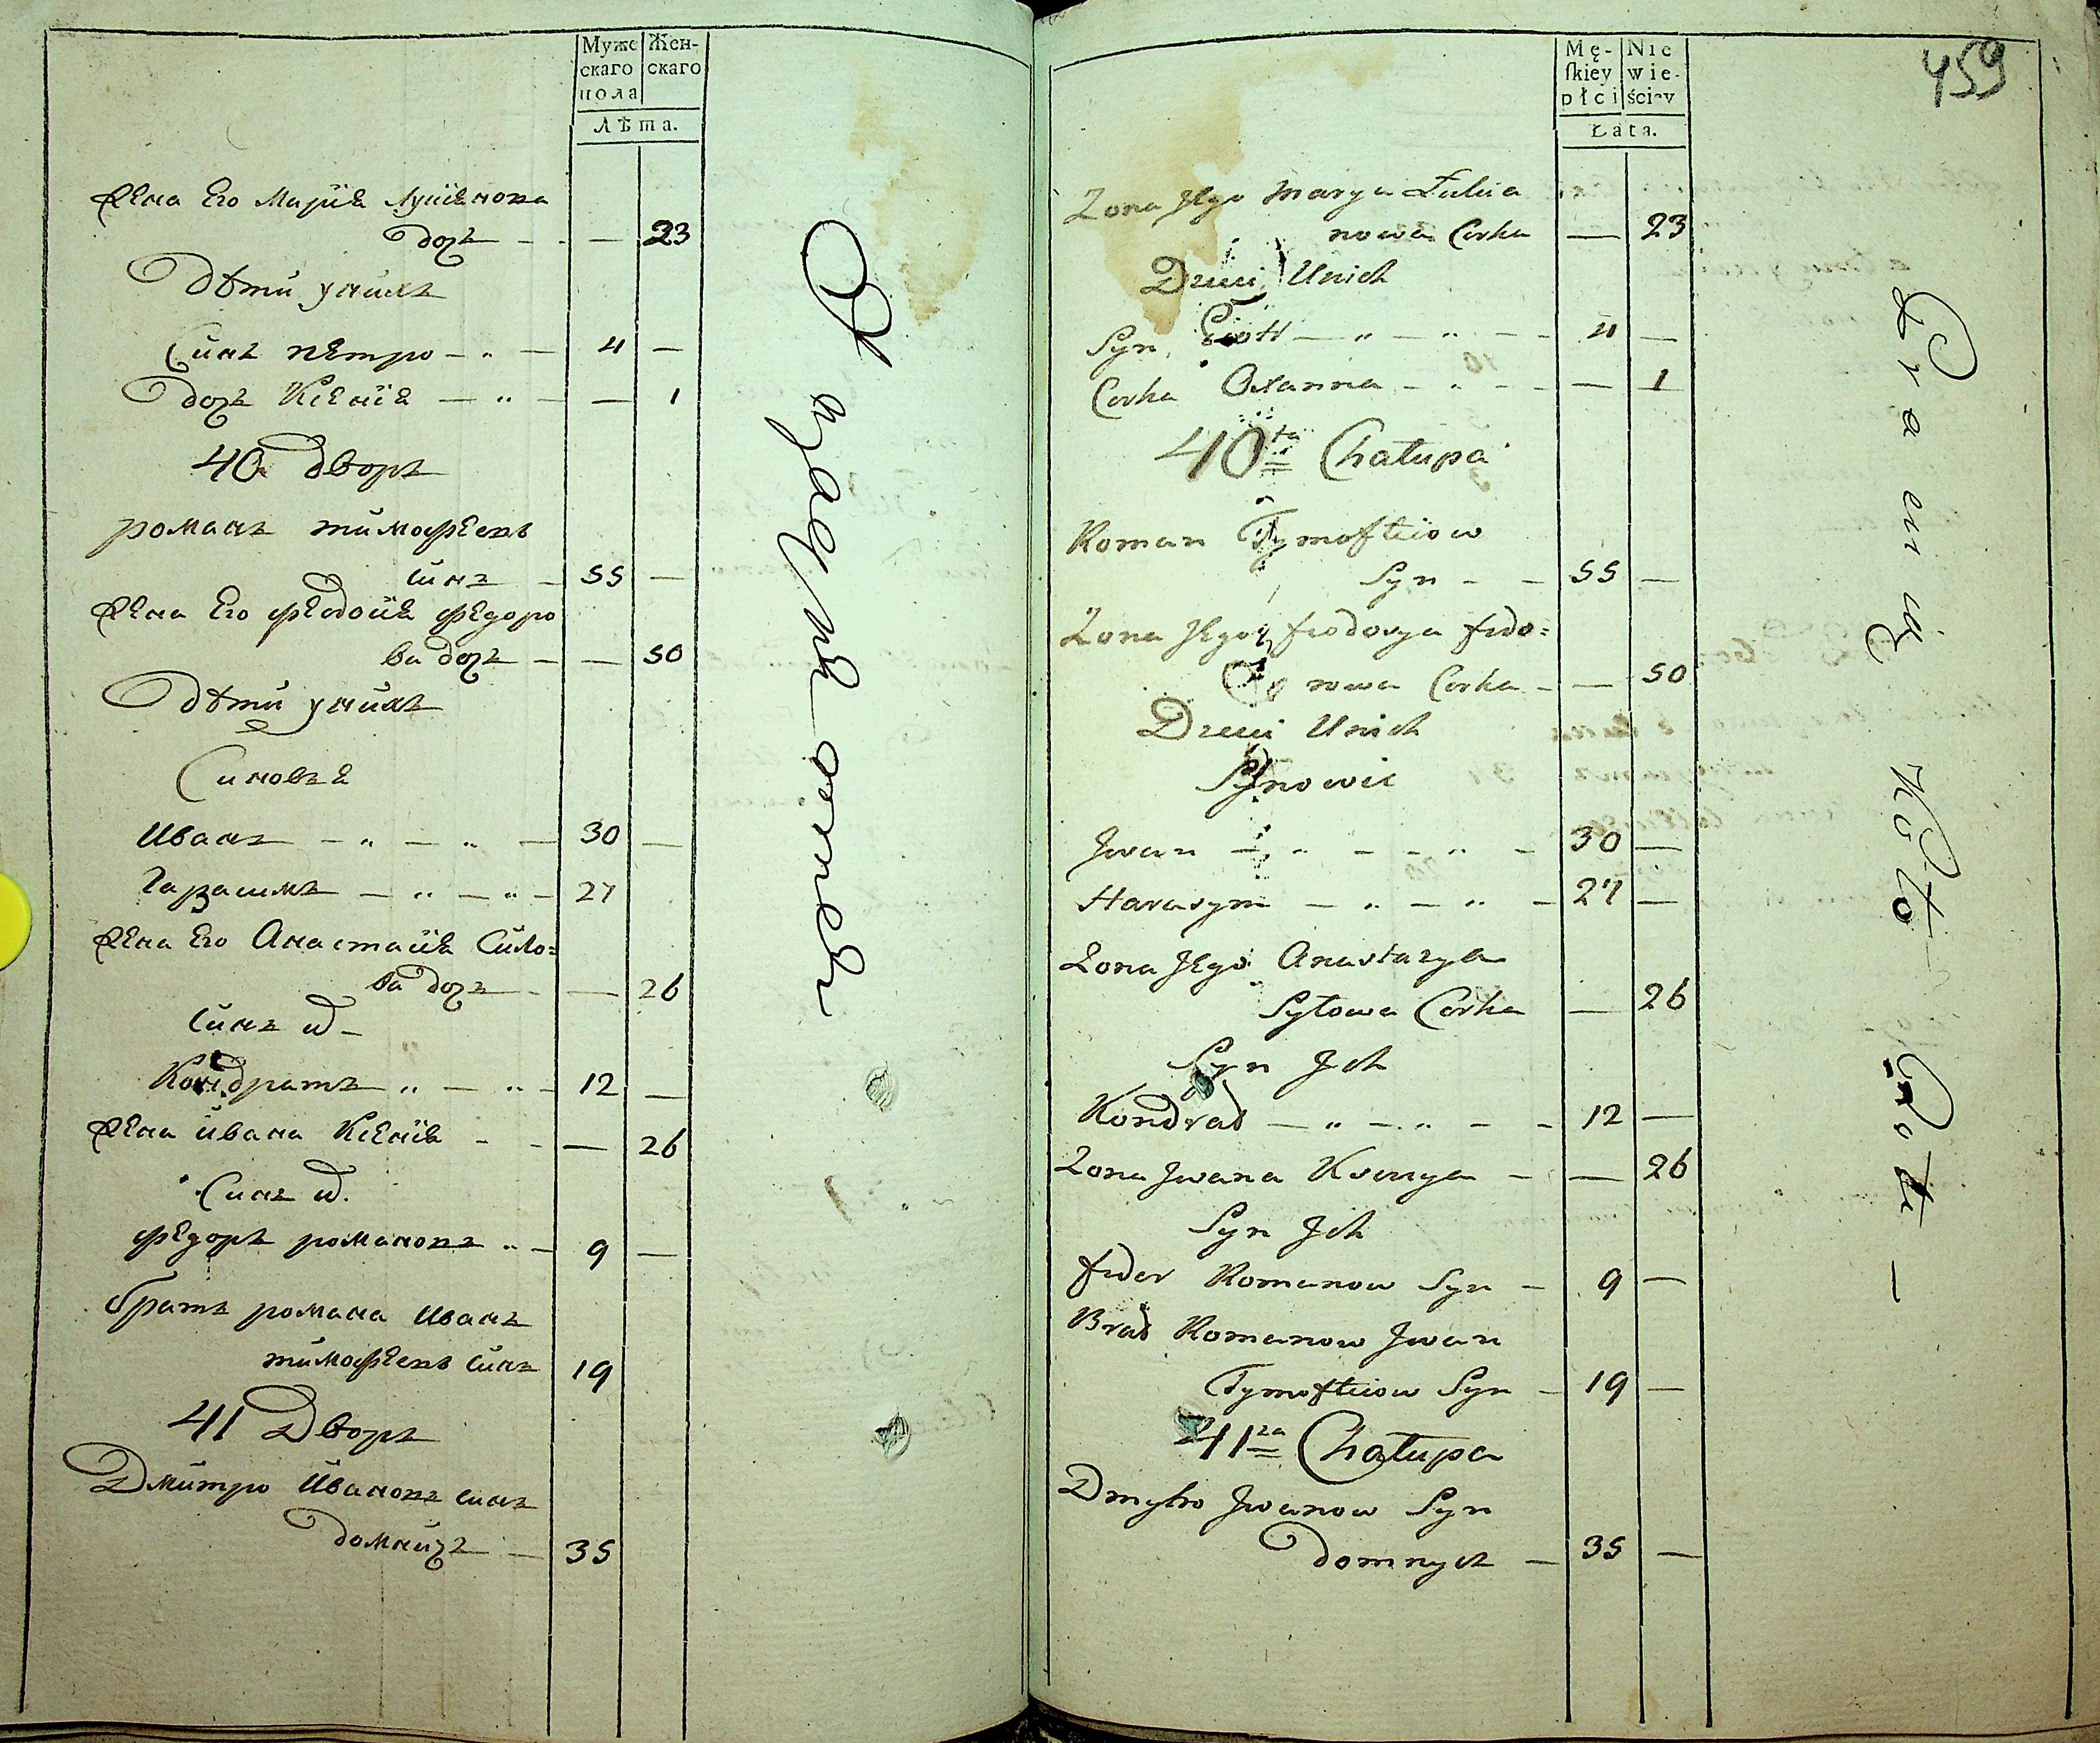 Муже
скаго
пола
Жен-
скаго
Лѣта.
Жена Его Марїя Лукїянова
дочь — — 23
Дѣти у нихъ
Синъ петро — „ — 4 —
Дочь Ксенїя — „ — — 1
40 Дворъ
романъ тимофѣевъ
Синъ — 55 —
Жена Его феодосїя федоро
ва дочь — — 50
Дѣти у нихъ
Синовья
Иванъ — „ — „ — 30 —
Гарасимъ — „ — „ — 27
Жена Его Анастасїя Сило=
ва дочь — — 26
Синъ и́
Кондратъ „ — „ — 12 —
Жена ивана Ксенїя — — 26
Синъ и́.
федоръ романовъ „ — 9 —
братъ романа Иванъ
тимофеевъ Синъ 19
41 Дворъ
Дмитро Ивановъ синъ
домничъ — 35
Mę-
skiey
płci
Nie
wie-
ściey
Łata.
459
Zona Jego Marya Łukia
nowa Corka — 23
Dzieci Unich
Syn Piotr — „ — „ — 4 —
Corka Oxanna — „ — — 1
40ta Chałupa
Roman Tymoftiiow
Syn — — 55 —
Zona Jego feodosya fedo=
rowa Corka — — 50
Dzieci Unich
Synowie
Jwan — „ — „ — 30 —
Harasym — „ — „ — 27 —
Zona Jego Anastazya
Syłowa Corka — 26
Syn Jch
Kondrad — „ — „ — 12 —
Zona Jwana Ksenya — — 26
Syn Jch
fedor Romanow Syn — 9 —
Brad Romanow Jwan
Tymofteiow Syn — 19 —
41za Chałupa
Dmytro Jwanow Syn
Domnycz — 35 —